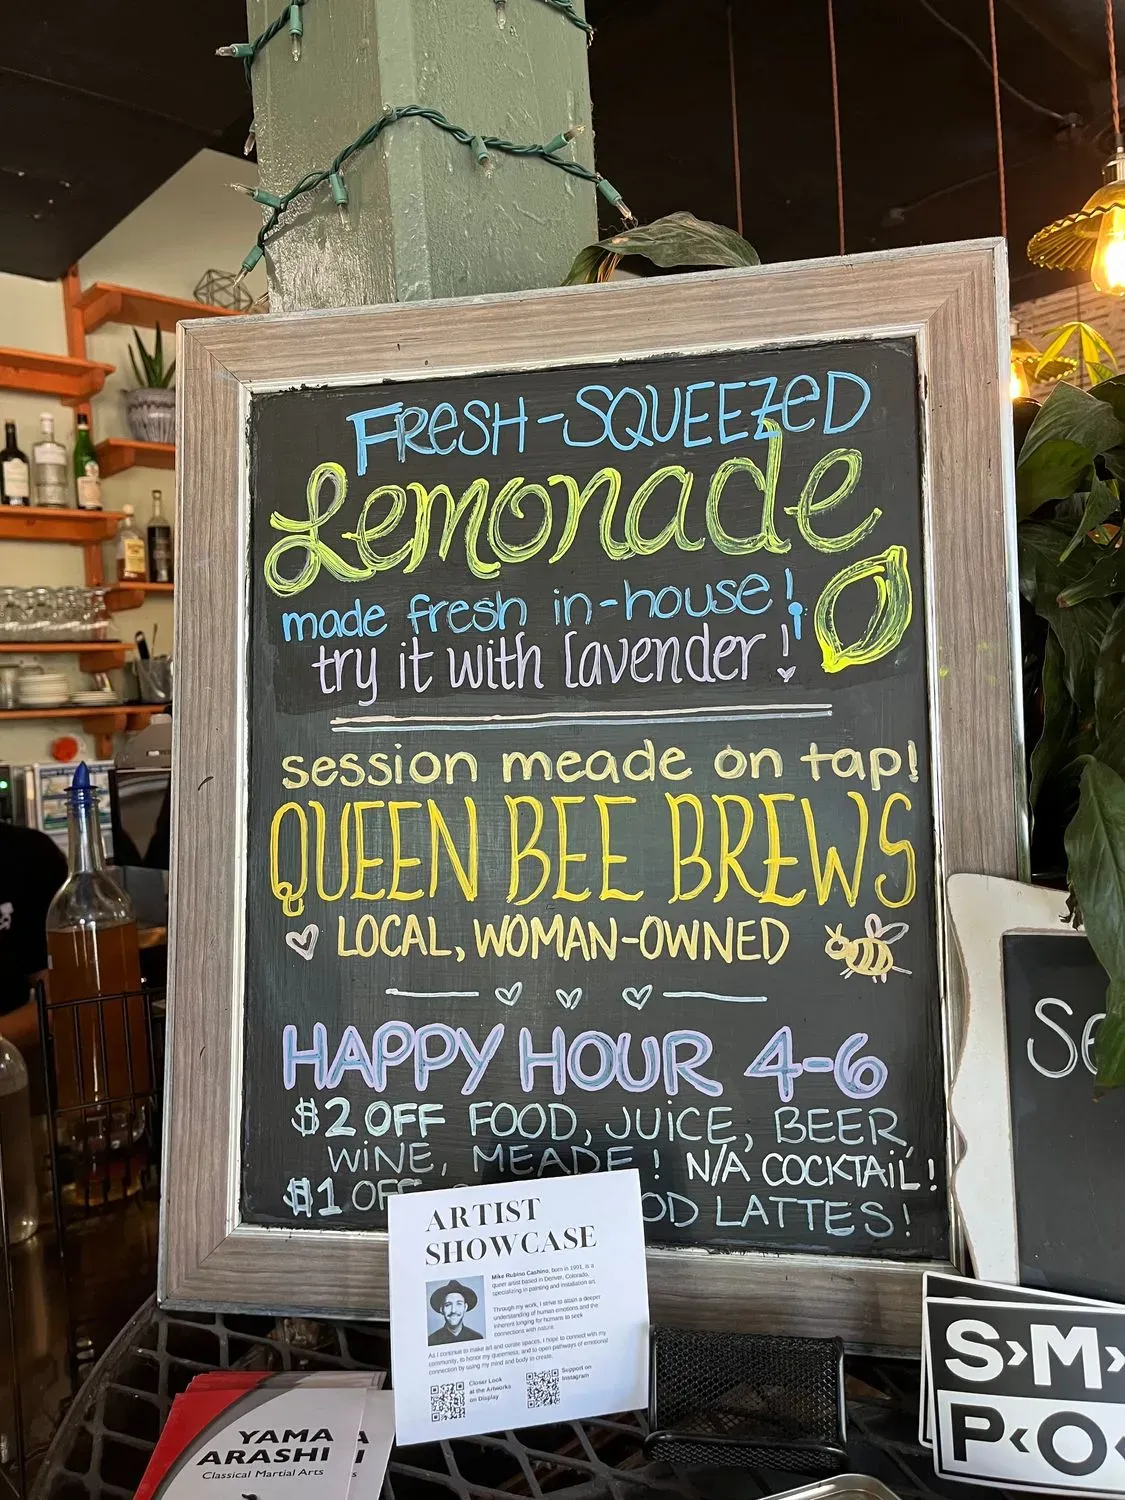 FRESH-SQUEEZED
Lemonade
made fresh in-house!
try it with lavender!
session meade on tap!
QUEEN BEE BREWS
LOCAL, WOMAN-OWNED
HAPPY HOUR 4-6
$2 OFF FOOD, JUICE, BEER,
WINE, MEADE! N/A COCKTAIL!
$1 OFF
OD LATTES!
ARTIST
SHOWCASE
Mike Rubino Cashino, born in 1991, is a
queer artist based in Denver, Colorado,
specializing in painting and installation art.
Through my work, I strive to attain a deeper
understanding of human emotions and the
inherent longing for humans to seek
connections with nature.
As I continue to make art and curate spaces, I hope to connect with my
community, to honor my queerness, and to open pathways of emotional
connection by using my mind and body to create.
Closer Look
at the Artworks
on Display
Support on
Instagram
YAMA
ARASHI
Classical Martial Arts
A
S›M›
P‹O‹